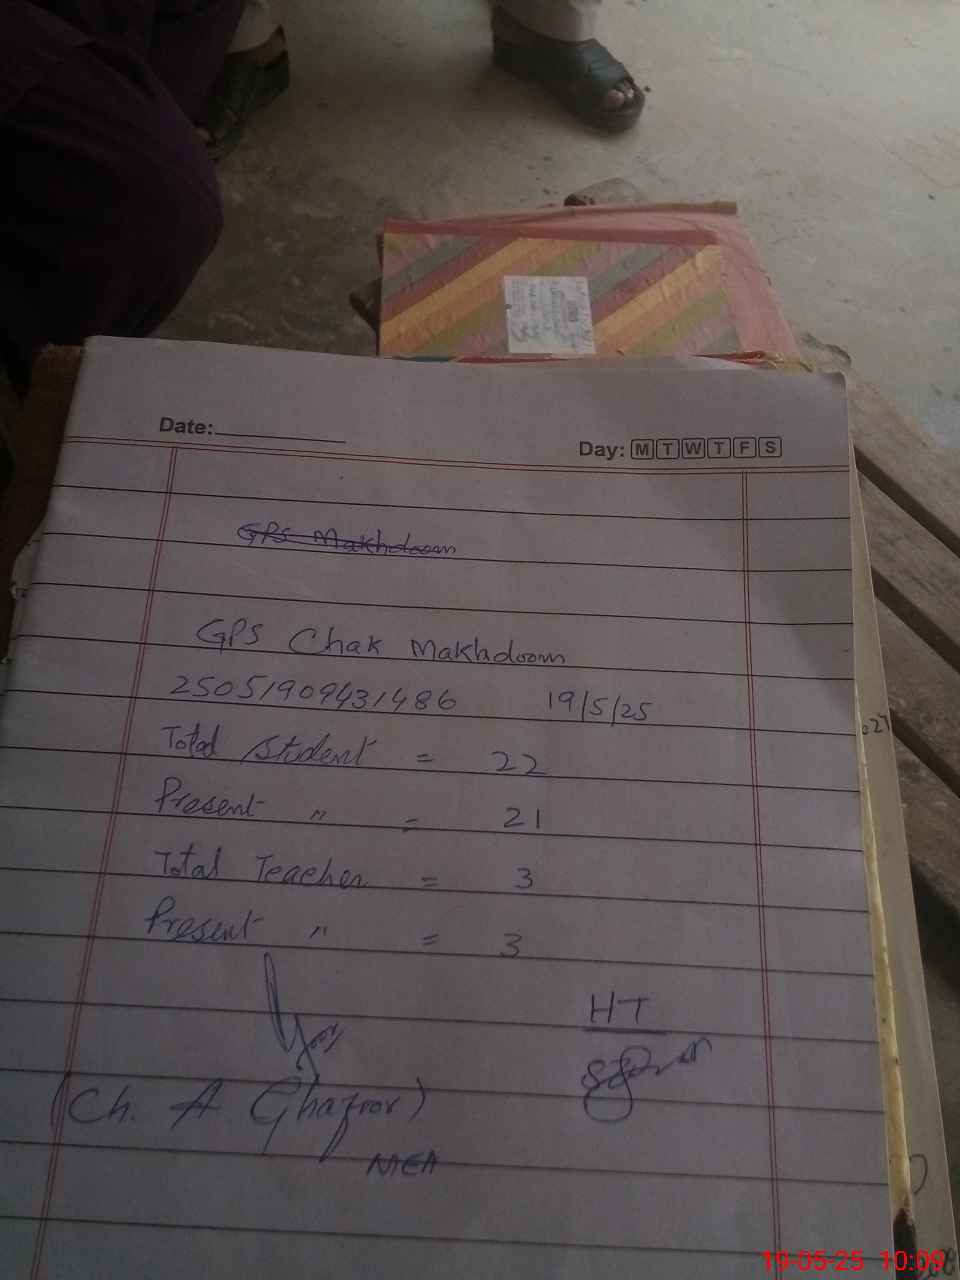 Date:
Day: M T W T F S
GPS Makhdoom
GPS Chak Makhdoom
25051909431486 19/5/25
Total Student = 22
Present " = 21
Total Teacher = 3
Present " = 3
HT
(Ch. A Ghafoor)
MEA
19-05-25 10:09